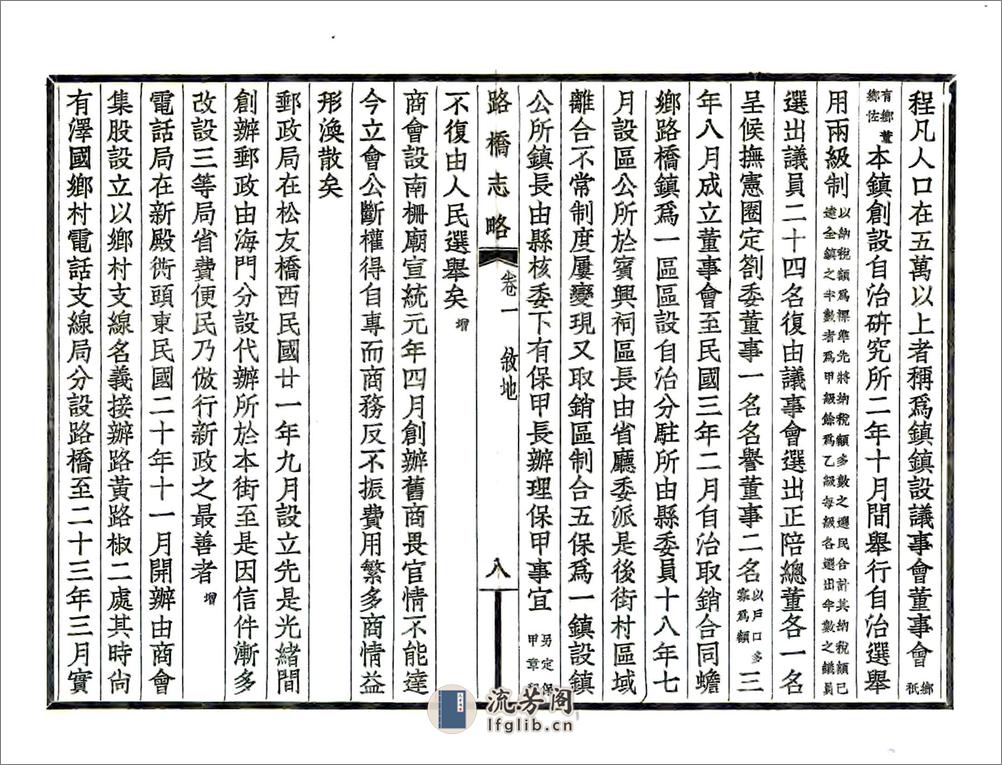 程凡人口在五萬以上者稱爲鎮鎮設議事會董事會鄉祇
有鄉董鄉佐本鎮創設自治研究所二年十月間舉行自治選舉
用兩級制以納稅額爲標準先將納稅額多數之選民合計其納稅額已達全鎮之半數者爲甲級餘爲乙級每級各選出半數之議員
選出議員二十四名復由議事會選出正陪總董各一名
呈候撫憲圈定劄委董事一名名譽董事二名以戶口多寡爲額三
年八月成立董事會至民國三年二月自治取銷合同蟾
鄉路橋鎮爲一區區設自治分駐所由縣委員十八年七
月設區公所於賓興祠區長由省廳委派是後街村區域
離合不常制度屢變現又取銷區制合五保爲一鎮設鎮
公所鎮長由縣核委下有保甲長辦理保甲事宜另定保甲章
路橋志略 卷一 敘地 八
不復由人民選舉矣增
商會設南柵廟宣統元年四月創辦舊商畏官情不能達
今立會公斷權得自專而商務反不振費用繁多商情益
形渙散矣
郵政局在松友橋西民國廿一年九月設立先是光緒間
創辦郵政由海門分設代辦所於本街至是因信件漸多
改設三等局省費便民乃倣行新政之最善者增
電話局在新殿衖頭東民國二十年十一月開辦由商會
集股設立以鄉村支線名義接辦路黃路椒二處其時尙
有澤國鄉村電話支線局分設路橋至二十三年三月實
流芳阁
lfglib.cn